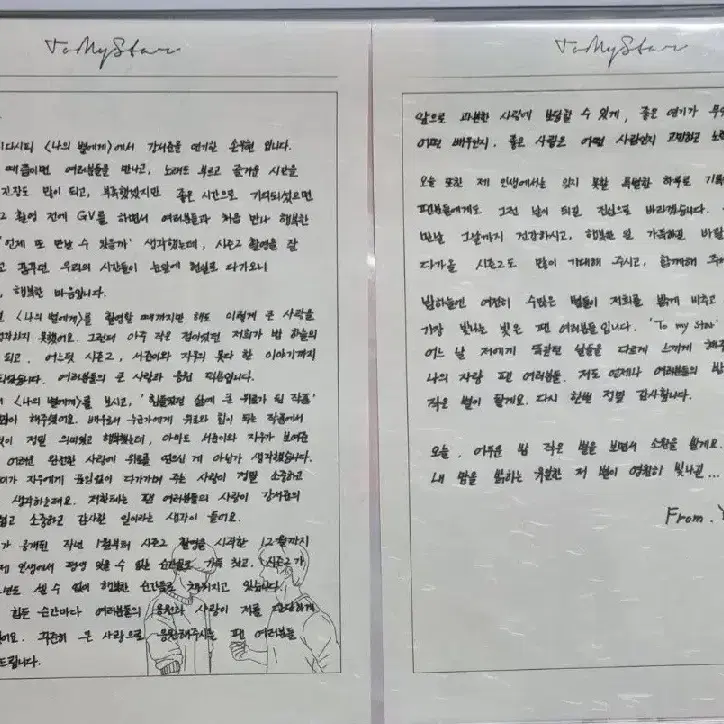 To My Star
시다시피 <나의 별에게>에서 강서준을 연기한 손우현 입니다.
때쯤이면 여러분들을 만나고, 노래도 부르고 즐거운 시간을
긴장도 많이 되고, 부족했겠지만 좋은 시간으로 기억되셨으면
촬영 전에 GV를 하면서 여러분들과 처음 만나 행복한
'언제 또 만날 수 있을까' 생각했는데, 시즌2 촬영을 잘
고 꿈꾸던 우리의 시간들이 눈앞에 현실로 다가오니
, 행복한 마음입니다.
<나의 별에게>를 촬영할 때까지만 해도 이렇게 큰 사랑을
생각하지 못했어요. 그런데 아주 작은 점이었던 저희가 밤 하늘의
되고, 어느덧 시즌2, 서준이와 지우의 못다 한 이야기까지
되었습니다. 여러분들의 큰 사랑과 응원 덕분입니다.
<나의 별에게>를 보시고, '힘들었던 삶에 큰 위로가 된 작품'
많이 해주셨어요. 배우로서 누군가에게 위로와 힘이 되는 작품에서
것이 정말 의미있고 행복했는데, 아마도 서준이와 지우가 보여준
어려운 완전한 사랑에 위로를 얻으신 게 아닌가 생각했습니다.
이가 지우에게 끊임없이 다가가며 주는 사랑이 정말 소중하고
생각하는데요. 저한테는 팬 여러분들의 사랑이 강서준의
쉽고 소중하고 감사한 일이라는 생각이 들어요.
가 공개된 작년 1월부터 시즌2 촬영을 시작한 12월까지
제 인생에서 평생 잊을 수 없는 순간들로 가득 찼고, 시즌2가
년도 셀 수 없이 행복한 순간들로 채워지고 있습니다.
힘든 순간마다 여러분들의 응원과 사랑이 저를 단단하게
어요. 꾸준히 큰 사랑으로 응원해주시는 팬 여러분들
드립니다.
To My Star
앞으로 과분한 사랑에 보답할 수 있게, 좋은 연기가 무
어떤 배우인지, 좋은 사람은 어떤 사람인지 고민하고 노
오늘 또한 제 인생에서는 잊지 못할 특별한 하루로 기
팬분들에게도 그런 날이 되길 진심으로 바라겠습니다.
만날 그날까지 건강하시고, 행복한 일 가득하길 바랄
다가올 시즌2도 많이 기대해 주시고, 함께해 주
밤하늘엔 여전히 수많은 별들이 저희를 밝게 비추고
가장 빛나는 빛은 팬 여러분들입니다. 'To my star'
어느 날 저에게 똑같던 일상을 다르게 느끼게 해
나의 자랑 팬 여러분들. 저도 언제나 여러분들의 밤
작은 별이 될게요. 다시 한번 정말 감사합니다.
오늘, 어두운 밤 작은 별을 보면서 소원을 빌게요.
내 밤을 밝히는 유일한 저 별이 영원히 빛나길...
From.